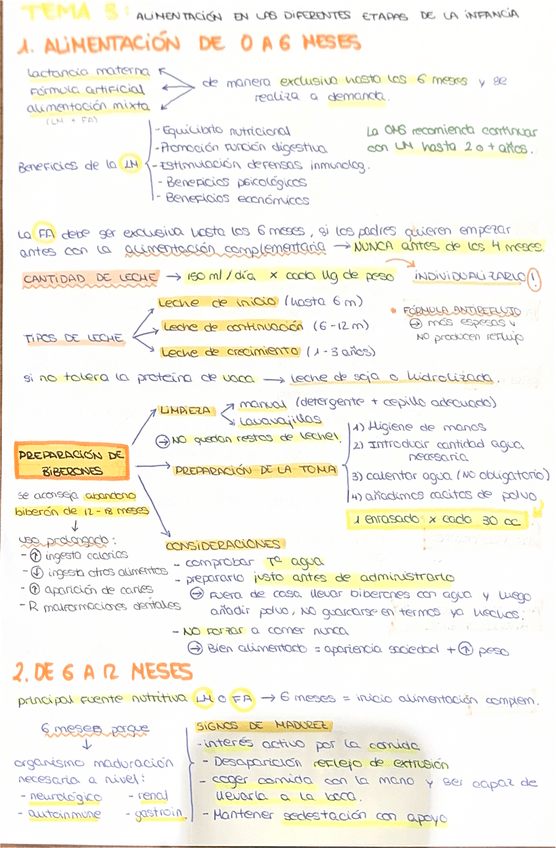 TEMA 3: ALIMENTACIÓN EN LAS DIFERENTES ETAPAS DE LA INFANCIA
1. ALIMENTACIÓN DE 0 A 6 MESES
lactancia materna
Fórmula artificial
alimentación mixta
(LM + FA)
de manera exclusiva hasta los 6 meses y se
realiza a demanda.
Beneficios de la LM
- Equilibrio nutricional
- Promoción función digestiva
- Estimulación defensas inmunolog.
- Beneficios psicológicos
- Beneficios económicos
La OMS recomienda continuar
con LM hasta 2 o + años.
La FA debe ser exclusiva hasta los 6 meses, si los padres quieren empezar
antes con la alimentación complementaria → NUNCA antes de los 4 meses
CANTIDAD DE LECHE → 150 ml / día x cada Kg de peso → INDIVIDUALIZARLO !
TIPOS DE LECHE
Leche de inicio (hasta 6 m)
Leche de continuación (6-12 m)
Leche de crecimiento (1-3 años)
• FÓRMULA ANTIREFLUJO
→ más espesas y
NO producen reflujo
si no tolera la proteína de vaca → leche de soja o hidrolizada.
PREPARACIÓN DE
BIBERONES
LIMPIEZA
manual (detergente + cepillo adecuado)
lavavajillas
→ NO quedan restos de leche!
PREPARACIÓN DE LA TOMA
1) Higiene de manos
2) Introducir cantidad agua
necesaria
3) calentar agua (NO obligatorio)
4) añadimos cacitos de polvo
1 enrasado x cada 30 cc
se aconseja abandono
biberón de 12-18 meses
↓
uso prolongado:
- ↑ ingesta calorias
- ↓ ingesta otros alimentos
- ↑ aparición de caries
- R malformaciones dentales
CONSIDERACIONES
- comprobar Tº agua
- prepararlo justo antes de administrarlo
→ Fuera de casa llevar biberones con agua y luego
añadir polvo, NO guardarse en termos ya hechos.
- NO FORZAR a comer nunca
→ Bien alimentado = apariencia saciedad + ↑ peso
2. DE 6 A 12 MESES
principal fuente nutritiva LM o FA → 6 meses = inicio alimentación complem.
6 meses porque
↓
organismo maduración
necesaria a nivel:
- neurológico - renal
- autoinmune - gastroin.
SIGNOS DE MADUREZ
- interés activo por la comida
- Desaparición reflejo de extrusión
- coger comida con la mano y ser capaz de
llevarla a la boca.
- Mantener sedestación con apoyo